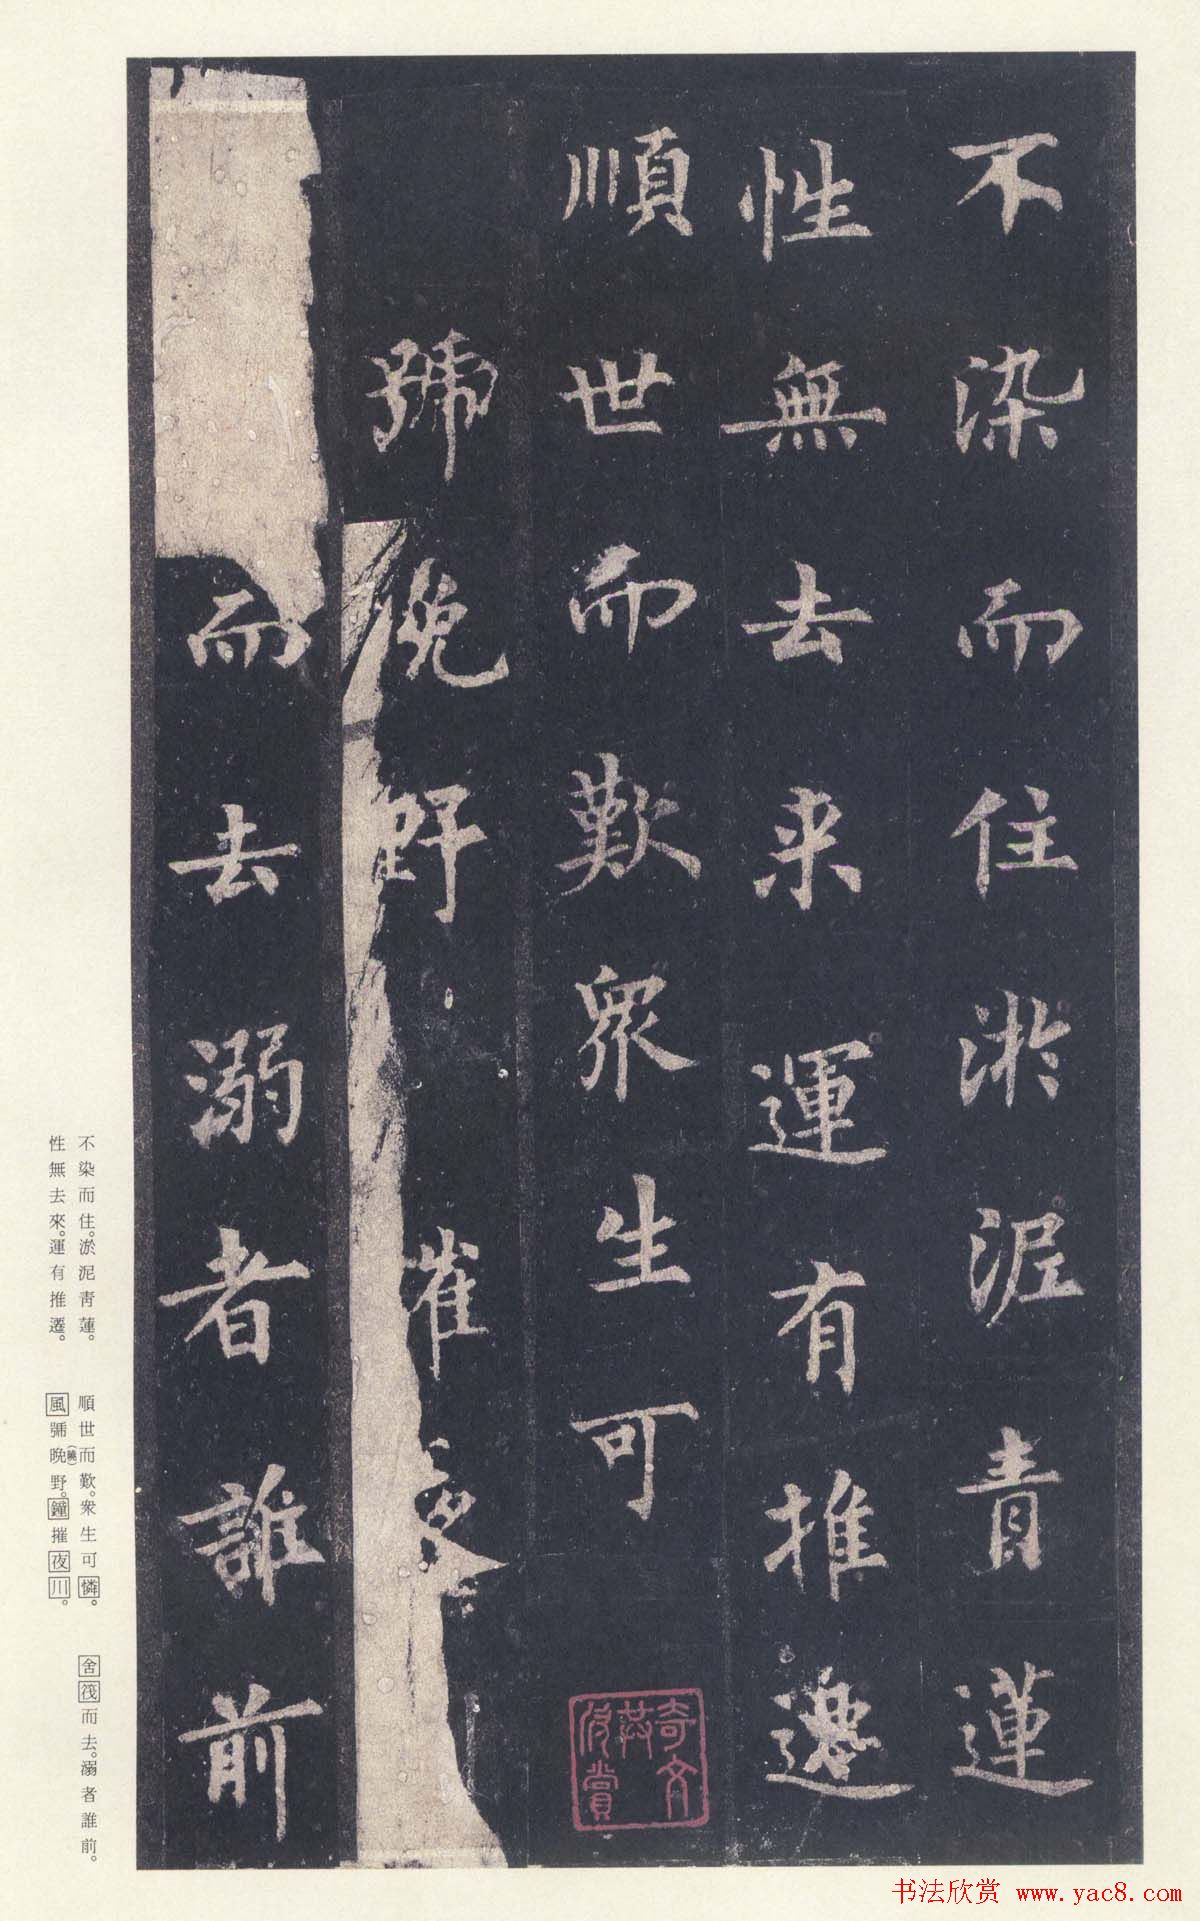 不染而住淤泥青蓮
性無去来運有推遷
順世而歎衆生可
號晚野摧夜
而去溺者誰前
奇文共欣賞
不染而住。淤泥青蓮。
性無去來。運有推遷。
順世而歎。衆生可憐。
風號晚(曉)野。鐘摧夜川。
舍筏而去。溺者誰前。
书法欣赏 www.yac8.com